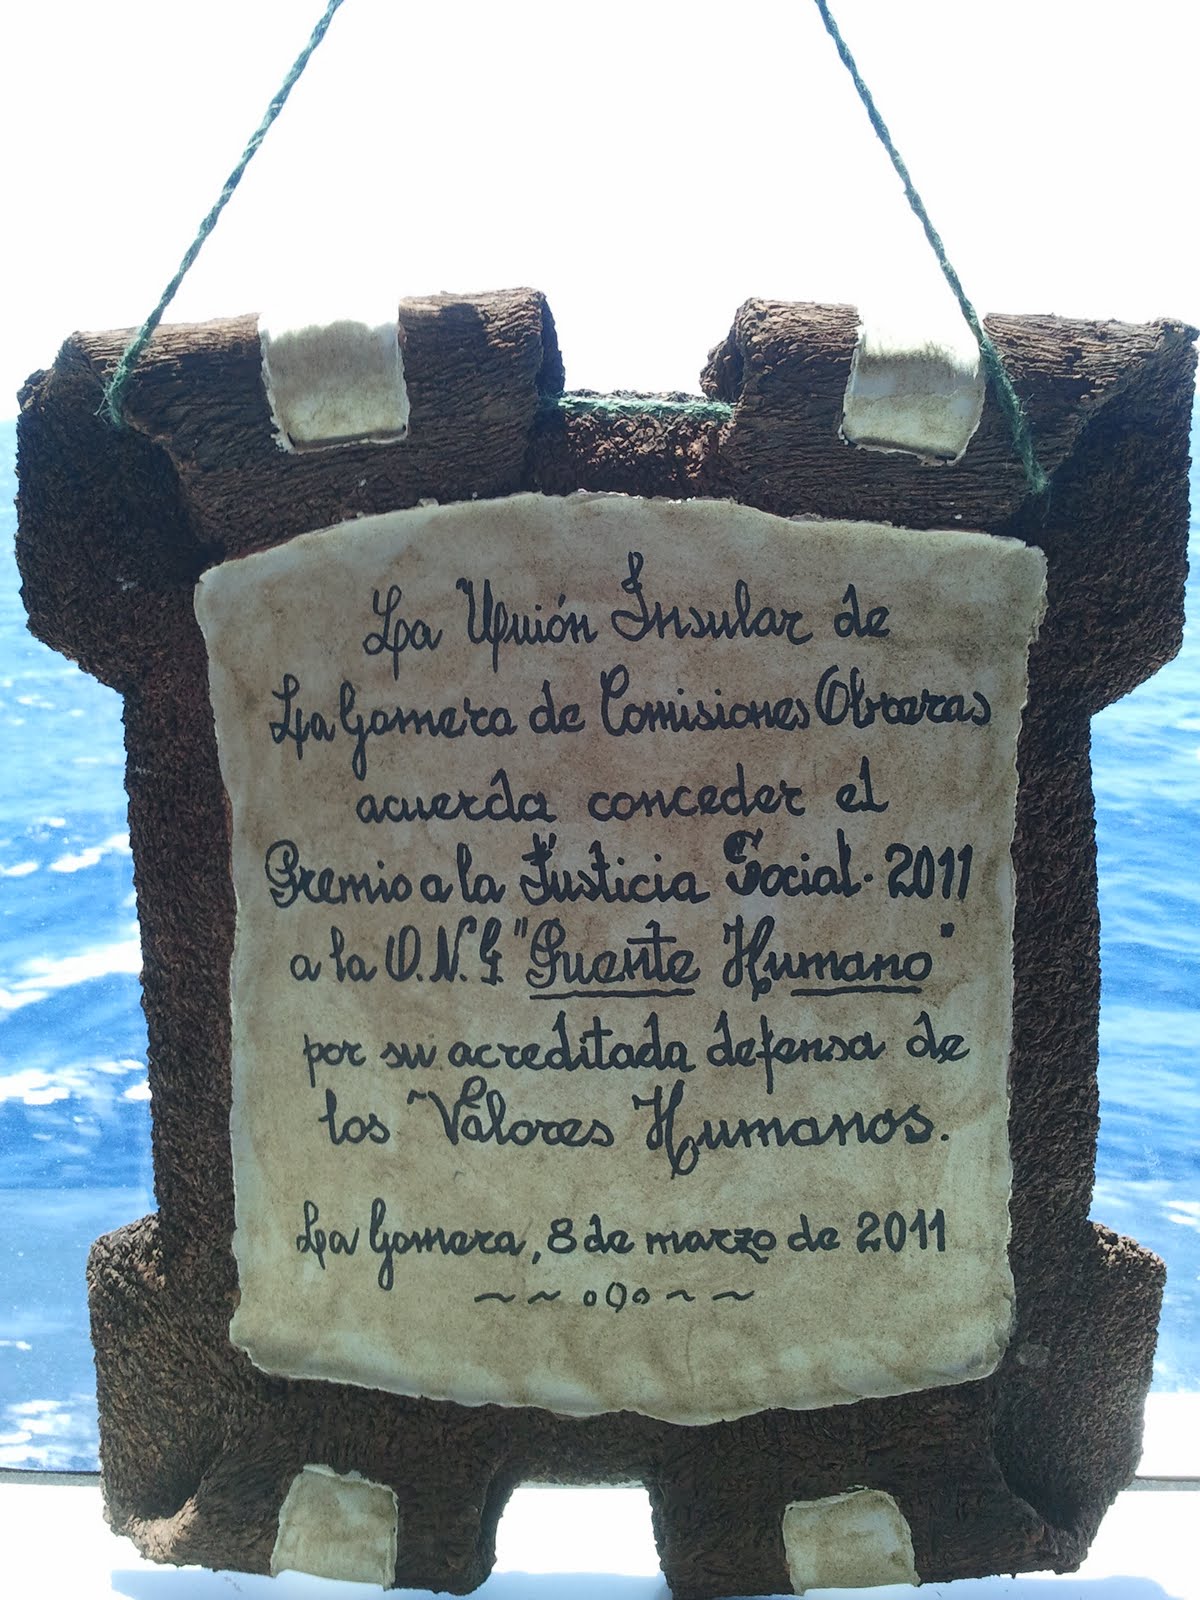 La Unión Insular de
La Gomera de Comisiones Obreras
acuerda conceder el
Premio a la Justicia Social. 2011
a la O.N.G "Puente Humano"
por su acreditada defensa de
los Valores Humanos.
La Gomera, 8 de marzo de 2011